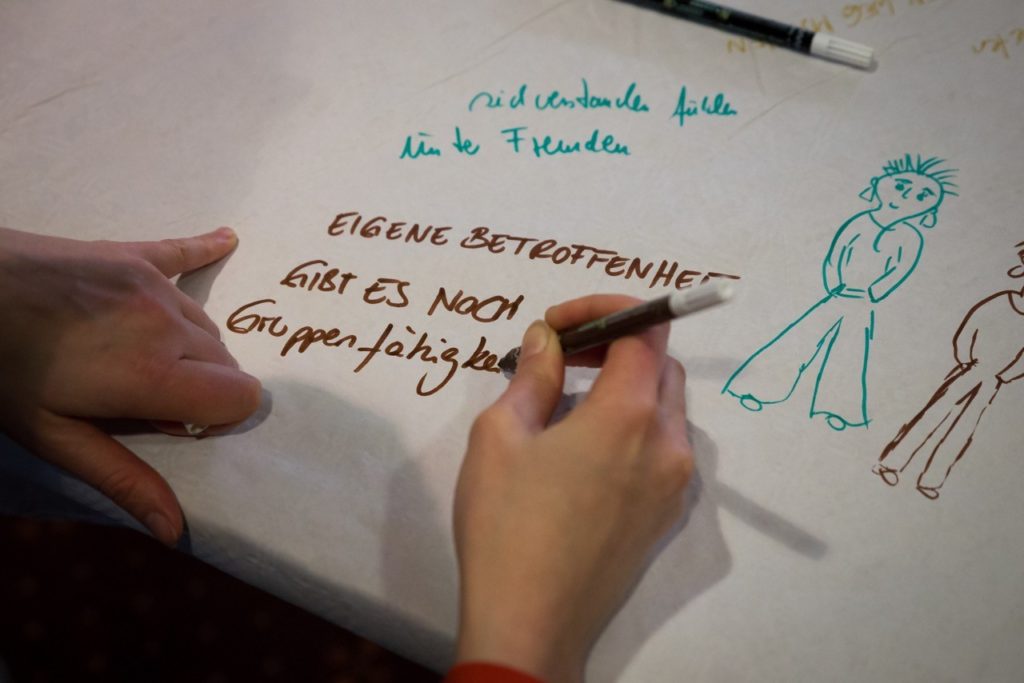 sich verstanden fühlen
unter Fremden
EIGENE BETROFFENHEIT
GIBT ES NOCH
Gruppenfähigkei